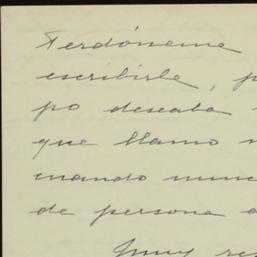 Perdóneme
escribirle, p
po deseaba
que llamo
cuando nunc
de persona
muy res